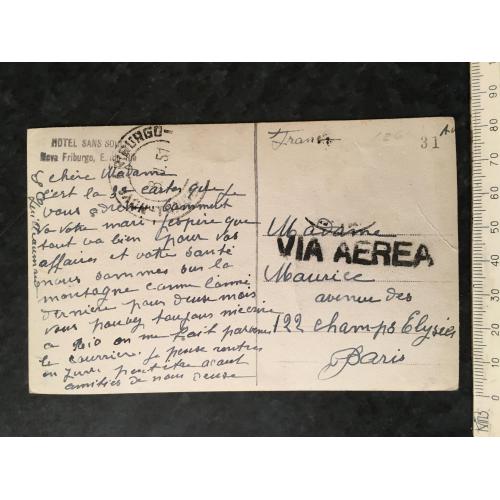 HOTEL SANS SOU
Nova Friburgo, E.
FRIBURGO
51
France
31
VIA AEREA
chère Madame
c'est la 2e cartes que
vous comment
va votre mari j'espère que
tout va bien pour vos
affaires et votre santé
nous sommes sur la
montagne comme l'année
dernière pour deux mois
vous pouvez toujours
a Rio on me fait
le courrier. je pense rentrer
en peut être avant
amitiés de nous
Madame
Maurice
avenue des
122 champs Elysées
Paris
0 10 20 30 40 50 60 70 80 90